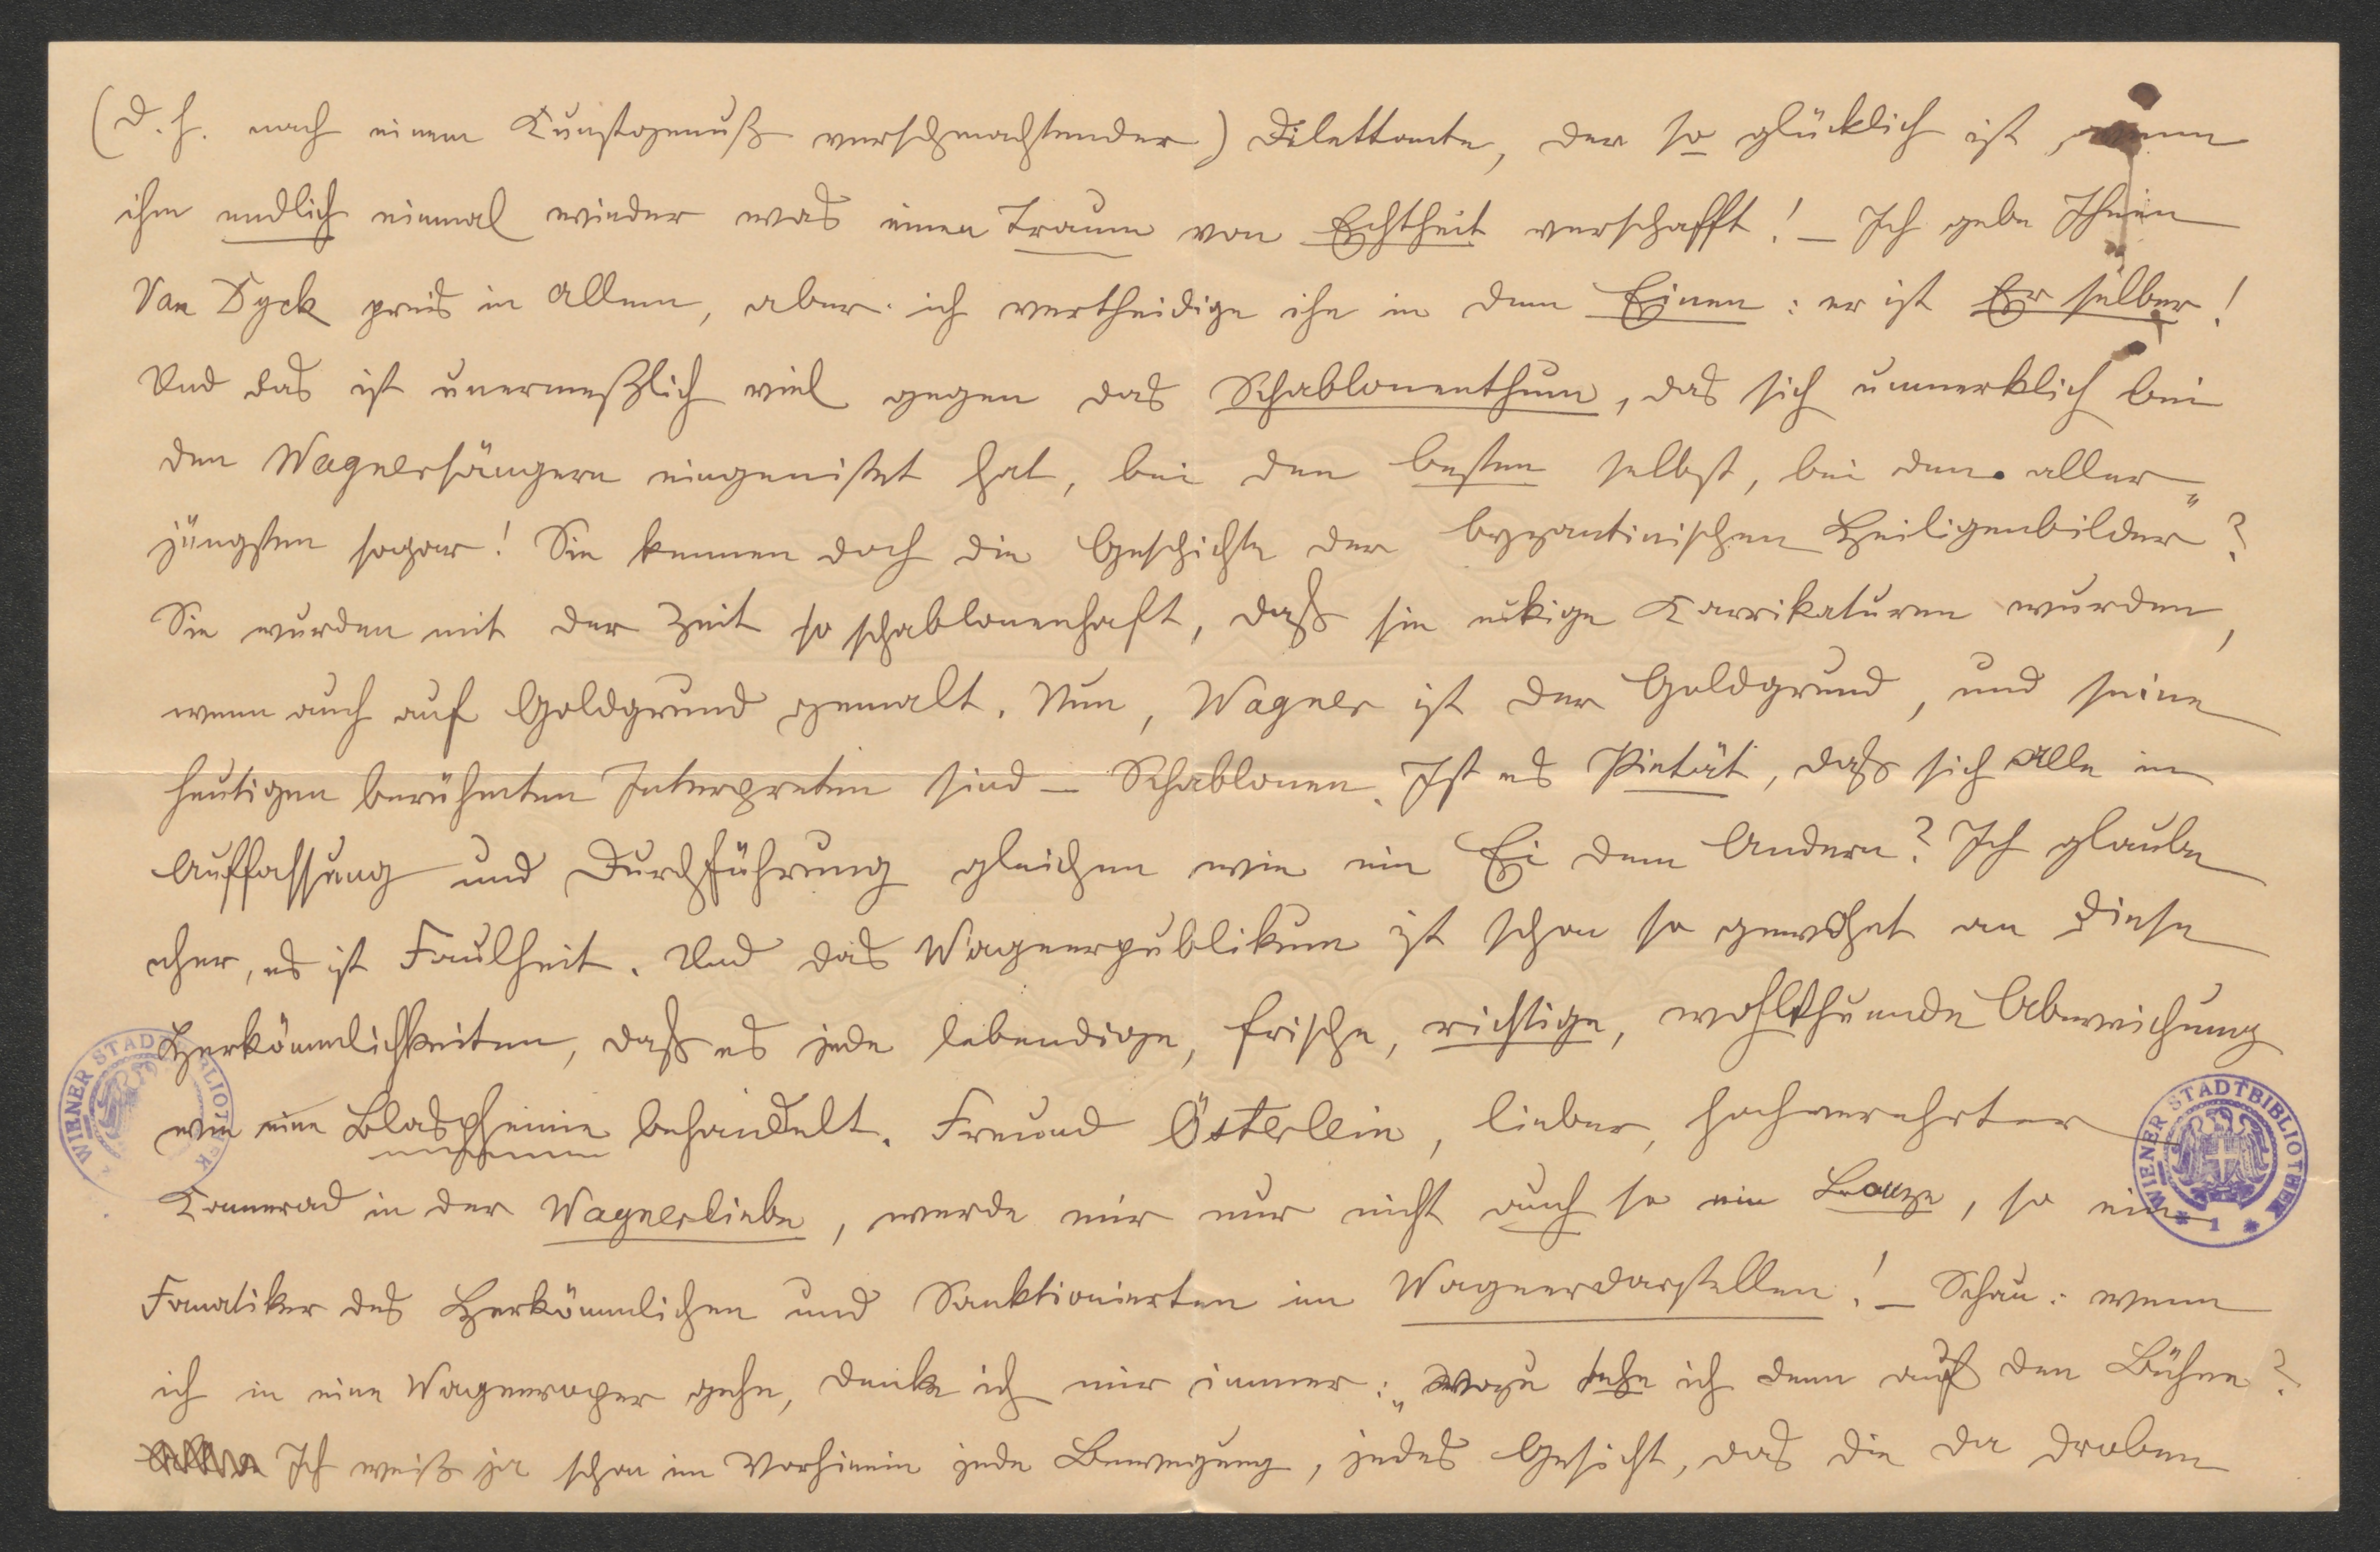 (d. h. nach einem Kunstgenuß verschmachtender) Dilettante, der so glücklich ist, wenn
ihm endlich einmal wieder was einen Traum von Echtheit verschafft! – Ich gebe Ihnen
Van Dyck preis in Allem, aber ich vertheidige ihn in dem Einen: er ist Er selber!
Und das ist unermeßlich viel gegen das Schablonenthum, das sich unmerklich bei
den Wagnersängern eingenistet hat, bei den besten selbst, bei den aller-
jüngsten sogar! Sie kennen doch die Geschichte der byzantinischen „Heiligenbilder"?
Sie wurden mit der Zeit so schablonenhaft, daß sie eckige Karrikaturen wurden,
wenn auch auf Goldgrund gemalt. Nun, Wagner ist der Goldgrund, und seine
heutigen berühmten Interpreten sind – Schablonen. Ist es Pietät, daß sich Alle in
Auffassung und Durchführung gleichen wie ein Ei dem Andern? Ich glaube
eher, es ist Faulheit. Und das Wagnerpublikum ist schon so gewohnt an diese
Herkömmlichkeiten, daß es jede lebendige, frische, richtige, wohlthuende Abweichung
wie eine Blasphemie behandelt. Freund Österlein, lieber, hochverehrter
Kamerad in der Wagnerliebe, werde mir nur nicht auch so ein, so ein
Fanatiker des Herkömmlichen und Sanktionierten im Wagnerdarstellen! – Schau: wenn
ich in eine Wagneroper gehe, denke ich mir immer: „Wozu sehe ich denn auf den Bühne?
Ich weiß ja schon im Vorhinein jede Bewegung, jedes Gesicht, das die da droben
WIENER STADTBIBLIOTHEK
WIENER STADTBIBLIOTHEK * 1 *